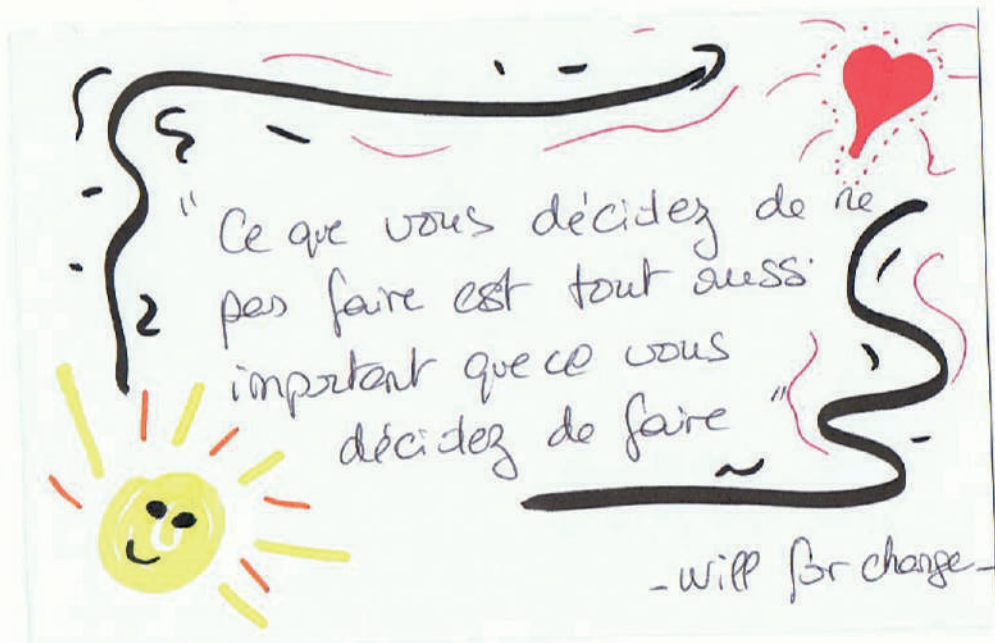 " Ce que vous décidez de ne
pas faire est tout aussi
important que ce vous
décidez de faire "
- will for change -